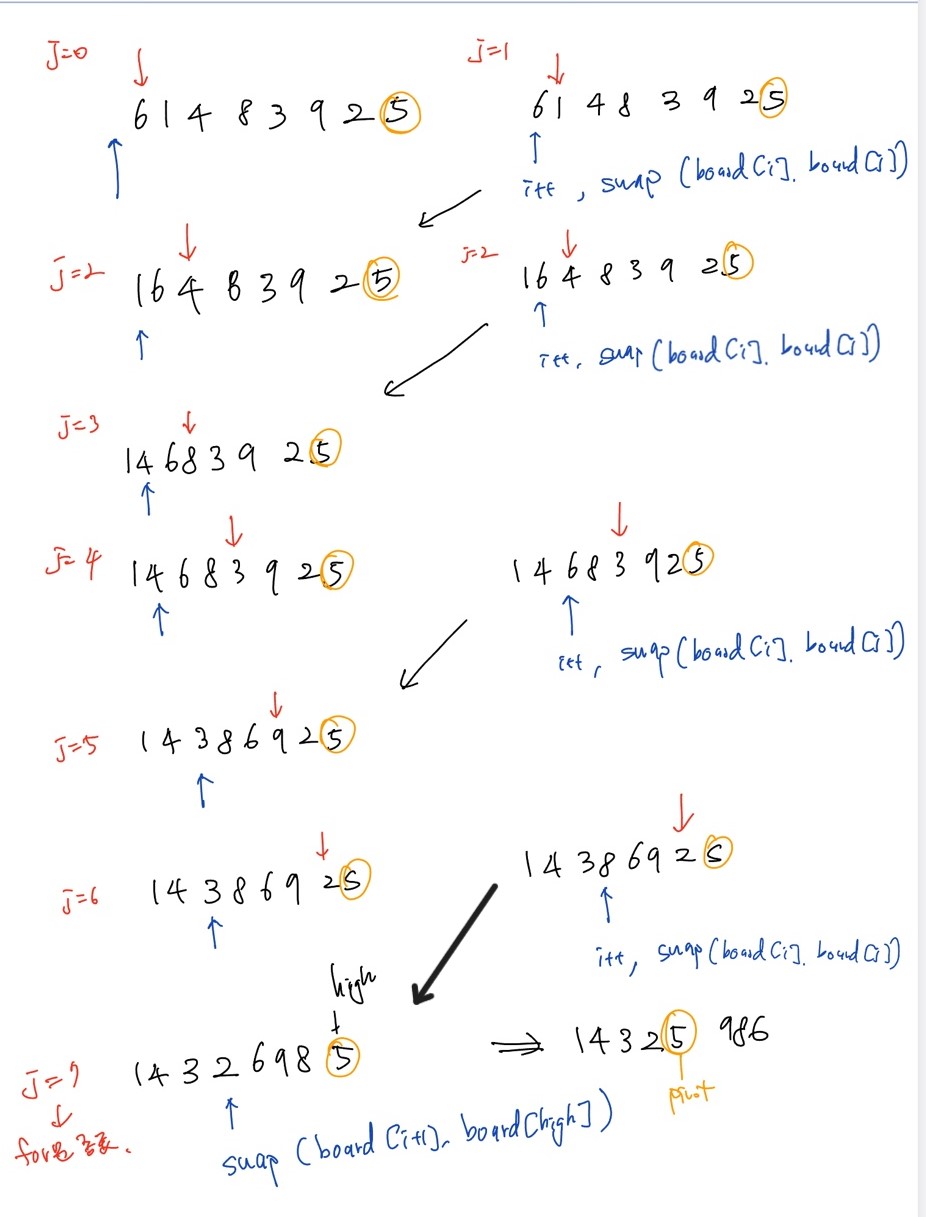 j=0
6 1 4 8 3 9 2 5
j=1
6 1 4 8 3 9 2 5
i++, swap (board[i], board[j])
j=2
1 6 4 8 3 9 2 5
j=2
1 6 4 8 3 9 2 5
i++, swap (board[i], board[j])
j=3
1 4 6 8 3 9 2 5
j=4
1 4 6 8 3 9 2 5
1 4 6 8 3 9 2 5
i++, swap (board[i], board[j])
j=5
1 4 3 8 6 9 2 5
j=6
1 4 3 8 6 9 2 5
1 4 3 8 6 9 2 5
i++, swap (board[i], board[j])
high
j=7
1 4 3 2 6 9 8 5
⇒ 1 4 3 2 5 9 8 6
pivot
for문 종료.
swap (board[i+1], board[high])